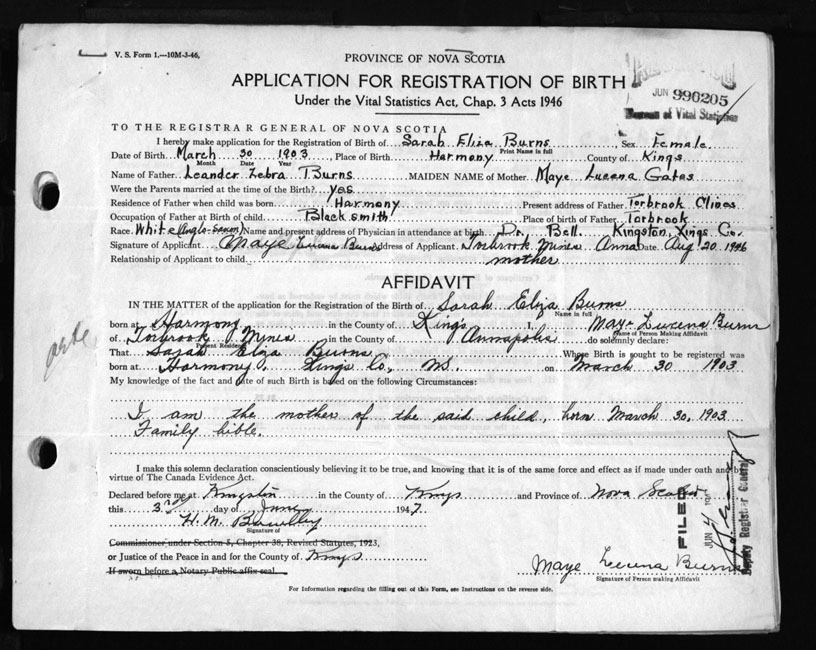 V. S. Form 1.—10M-3-46.
PROVINCE OF NOVA SCOTIA
APPLICATION FOR REGISTRATION OF BIRTH
Under the Vital Statistics Act, Chap. 3 Acts 1946
JUN 990205
Bureau of Vital Statistics
TO THE REGISTRAR GENERAL OF NOVA SCOTIA
I hereby make application for the Registration of Birth of Sarah Eliza Burns Sex Female
Print Name in full
Date of Birth March 30 1903 Place of Birth Harmony County of Kings
Month Date Year
Name of Father Leander Zebra Burns MAIDEN NAME of Mother Maye Lucena Gates
Were the Parents married at the time of the Birth? Yes
Residence of Father when child was born Harmony Present address of Father Torbrook Mines
Occupation of Father at Birth of child Blacksmith Place of birth of Father Torbrook
Race White (Anglo-Saxon) Name and present address of Physician in attendance at birth Dr. Bell. Kingston, Kings Co.
Signature of Applicant Maye Lucena Burns Address of Applicant Torbrook Mines Anna Date Aug 20 1946
Relationship of Applicant to child mother
AFFIDAVIT
IN THE MATTER of the application for the Registration of the Birth of Sarah Eliza Burns
Name in full
born at Harmony in the County of Kings I, Maye Lucena Burns
Name of Person Making Affidavit
of Torbrook Mines in the County of Annapolis do solemnly declare:
Present Residence
That Sarah Eliza Burns Whose Birth is sought to be registered was
born at Harmony, Kings Co., NS. on March 30 1903
My knowledge of the fact and date of such Birth is based on the following Circumstances:
I am the mother of the said child, born March 30, 1903.
Family bible.
I make this solemn declaration conscientiously believing it to be true, and knowing that it is of the same force and effect as if made under oath and by
virtue of The Canada Evidence Act.
Declared before me at Kingston in the County of Kings and Province of Nova Scotia
this 3rd day of June 1947
H. M.
Signature of
Commissioner under Section 5, Chapter 38, Revised Statutes, 1923,
or Justice of the Peace in and for the County of Kings
If sworn before a Notary Public affix seal.
Maye Lucena Burns
Signature of Person making Affidavit
FILED
JUN 4
Deputy Registrar General
For Information regarding the filling out of this Form, see Instructions on the reverse side.